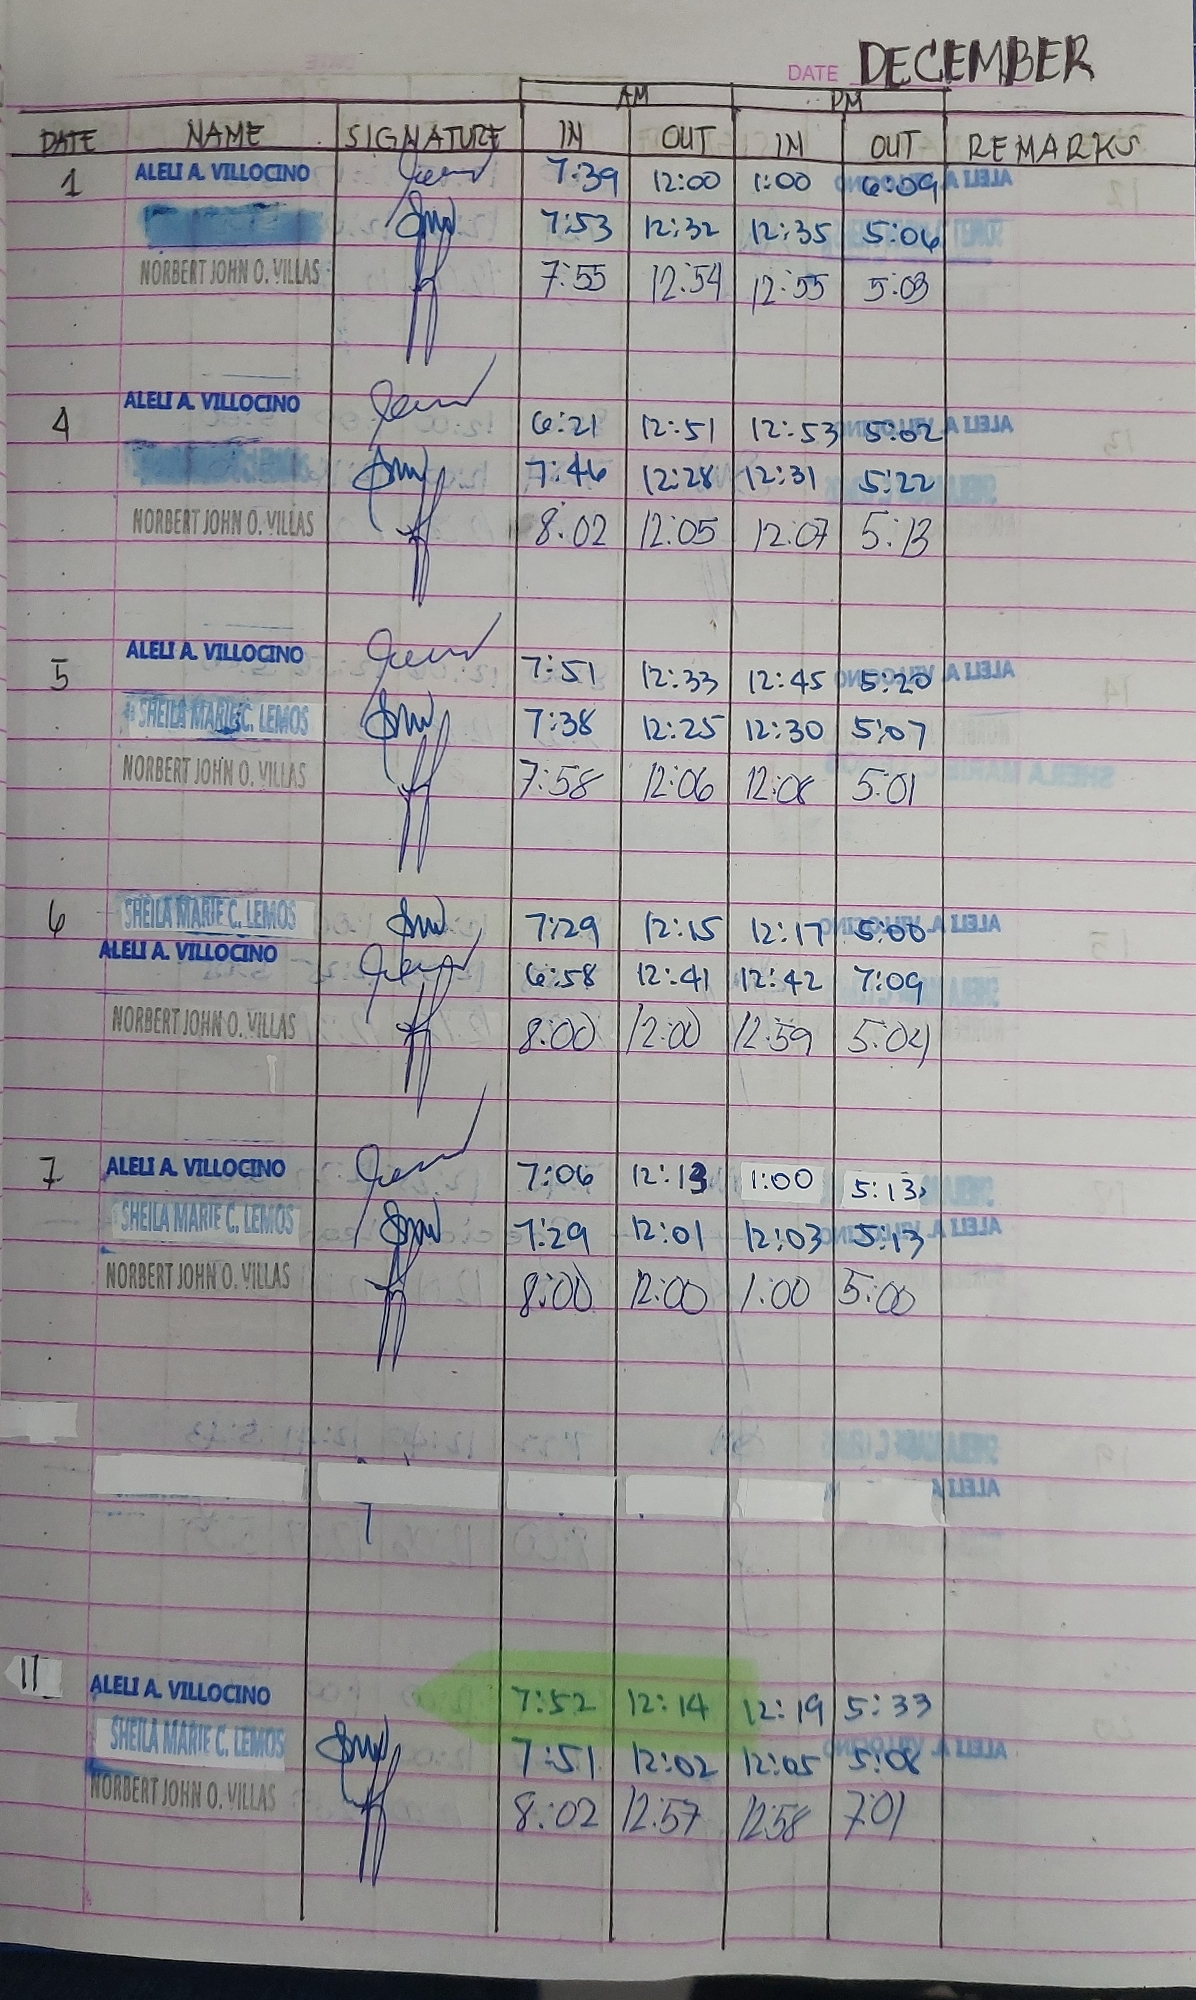 DATE DECEMBER
AM PM
DATE NAME SIGNATURE IN OUT IN OUT REMARKS
1 ALELI A. VILLOCINO 7:39 12:00 1:00 6:09
7:53 12:32 12:35 5:06
NORBERT JOHN O. VILLAS 7:55 12:54 12:55 5:03
4 ALELI A. VILLOCINO 6:21 12:51 12:53 5:02
7:46 12:28 12:31 5:22
NORBERT JOHN O. VILLAS 8:02 12:05 12:07 5:13
5 ALELI A. VILLOCINO 7:51 12:33 12:45 5:20
SHEILA MARIE C. LEMOS 7:38 12:25 12:30 5:07
NORBERT JOHN O. VILLAS 7:58 12:06 12:08 5:01
6 SHEILA MARIE C. LEMOS 7:29 12:15 12:17 5:00
ALELI A. VILLOCINO 6:58 12:41 12:42 7:09
NORBERT JOHN O. VILLAS 8:00 12:00 12:59 5:04
7 ALELI A. VILLOCINO 7:06 12:13 1:00 5:13
SHEILA MARIE C. LEMOS 7:29 12:01 12:03 5:13
NORBERT JOHN O. VILLAS 8:00 12:00 1:00 5:00
11 ALELI A. VILLOCINO 7:52 12:14 12:19 5:33
SHEILA MARIE C. LEMOS 7:51 12:02 12:05 5:08
NORBERT JOHN O. VILLAS 8:02 12:57 12:58 7:01